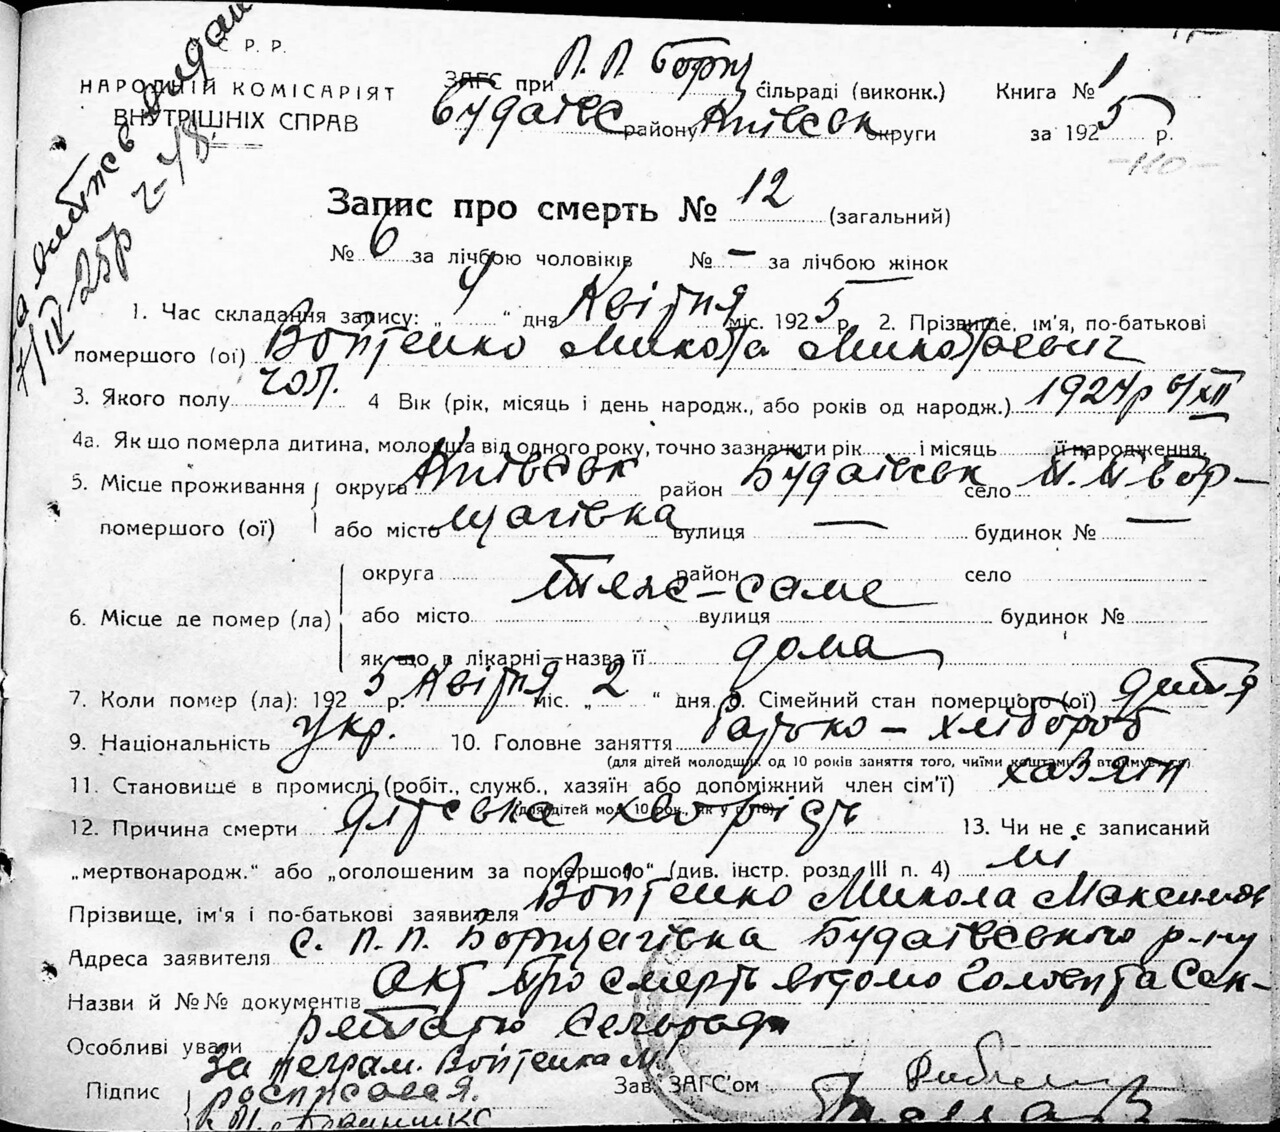 С. Р. Р.
НАРОДНІЙ КОМІСАРІЯТ
ВНУТРІШНІХ СПРАВ
ЗАГС при П. П. Борщ сільраді (виконк.) Книга № 1
Будаївс району Київськ округи за 1925 р.
-110-
Запис про смерть № 12 (загальний)
№ 6 за лічбою чоловіків № – за лічбою жінок
1. Час складання запису: „ 4 “ дня Квітня міс. 1925 р. 2. Прізвище, ім'я, по-батькові
помершого (ої) Войтенко Микола Миколаевич
3. Якого полу чол. 4 Вік (рік, місяць і день народж., або років од народж.) 1924 р 6/XII
4а. Як що померла дитина, молодша від одного року, точно зазначити рік і місяць її народження.
5. Місце проживання округа Київськ район Будаївськ село П. П Бор-
помершого (ої) або місто щагівка вулиця — будинок № —
округа район село
теж-саме
6. Місце де помер (ла) або місто вулиця будинок №
як що в лікарні—назва її дома
7. Коли помер (ла): 1925 р. Квітня міс. „ 2 “ дня. 8. Сімейний стан помершого (ої) дитя
9. Національність укр. 10. Головне заняття батько – хлібороб
(для дітей молодш. од 10 років заняття того, чиїми коштами втримується).
11. Становище в промислі (робіт., служб., хазяїн або допоміжний член сім'ї) хазяїн
(для дітей мол. 10 рок., як у п. 10)
12. Причина смерти 13. Чи не є записаний
„мертвонародж.“ або „оголошеним за помершого“ (див. інстр. розд. III п. 4) ні
Прізвище, ім'я і по-батькові заявителя Войтенко Микола Максимов
Адреса заявителя с. П. П. Борщагівка Будаївського р-ну
Назви й №№ документів Акт про смерть відомо Голові та Сек-
ретарю Сельради
Особливі уваги
За неграм. Войтенка М
Підпис росписался.
Зав. ЗАГС'ом